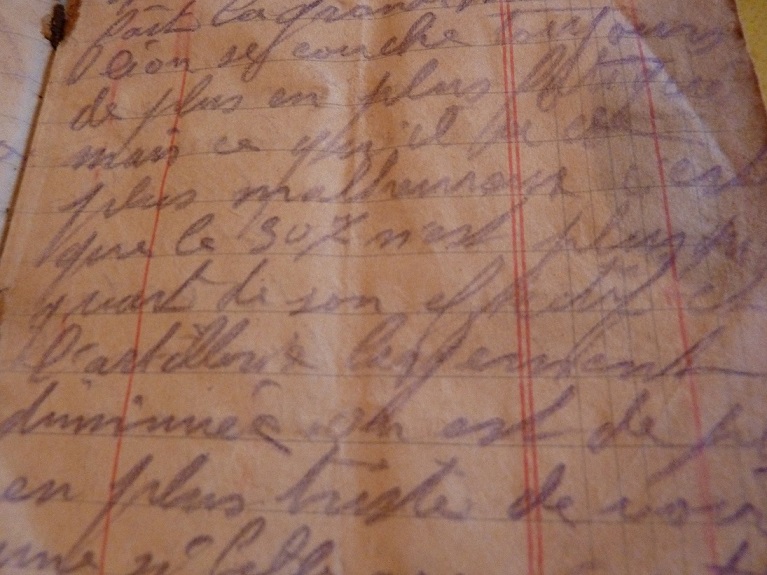 fait la grand
lion se couche toujours
de plus en plus
mais ce qu'il
plus malheureux c'est
que le 307 n'est plus
quart de son effectif et
l'artillerie largement
diminuée on est de
en plus triste de voir
une si belle